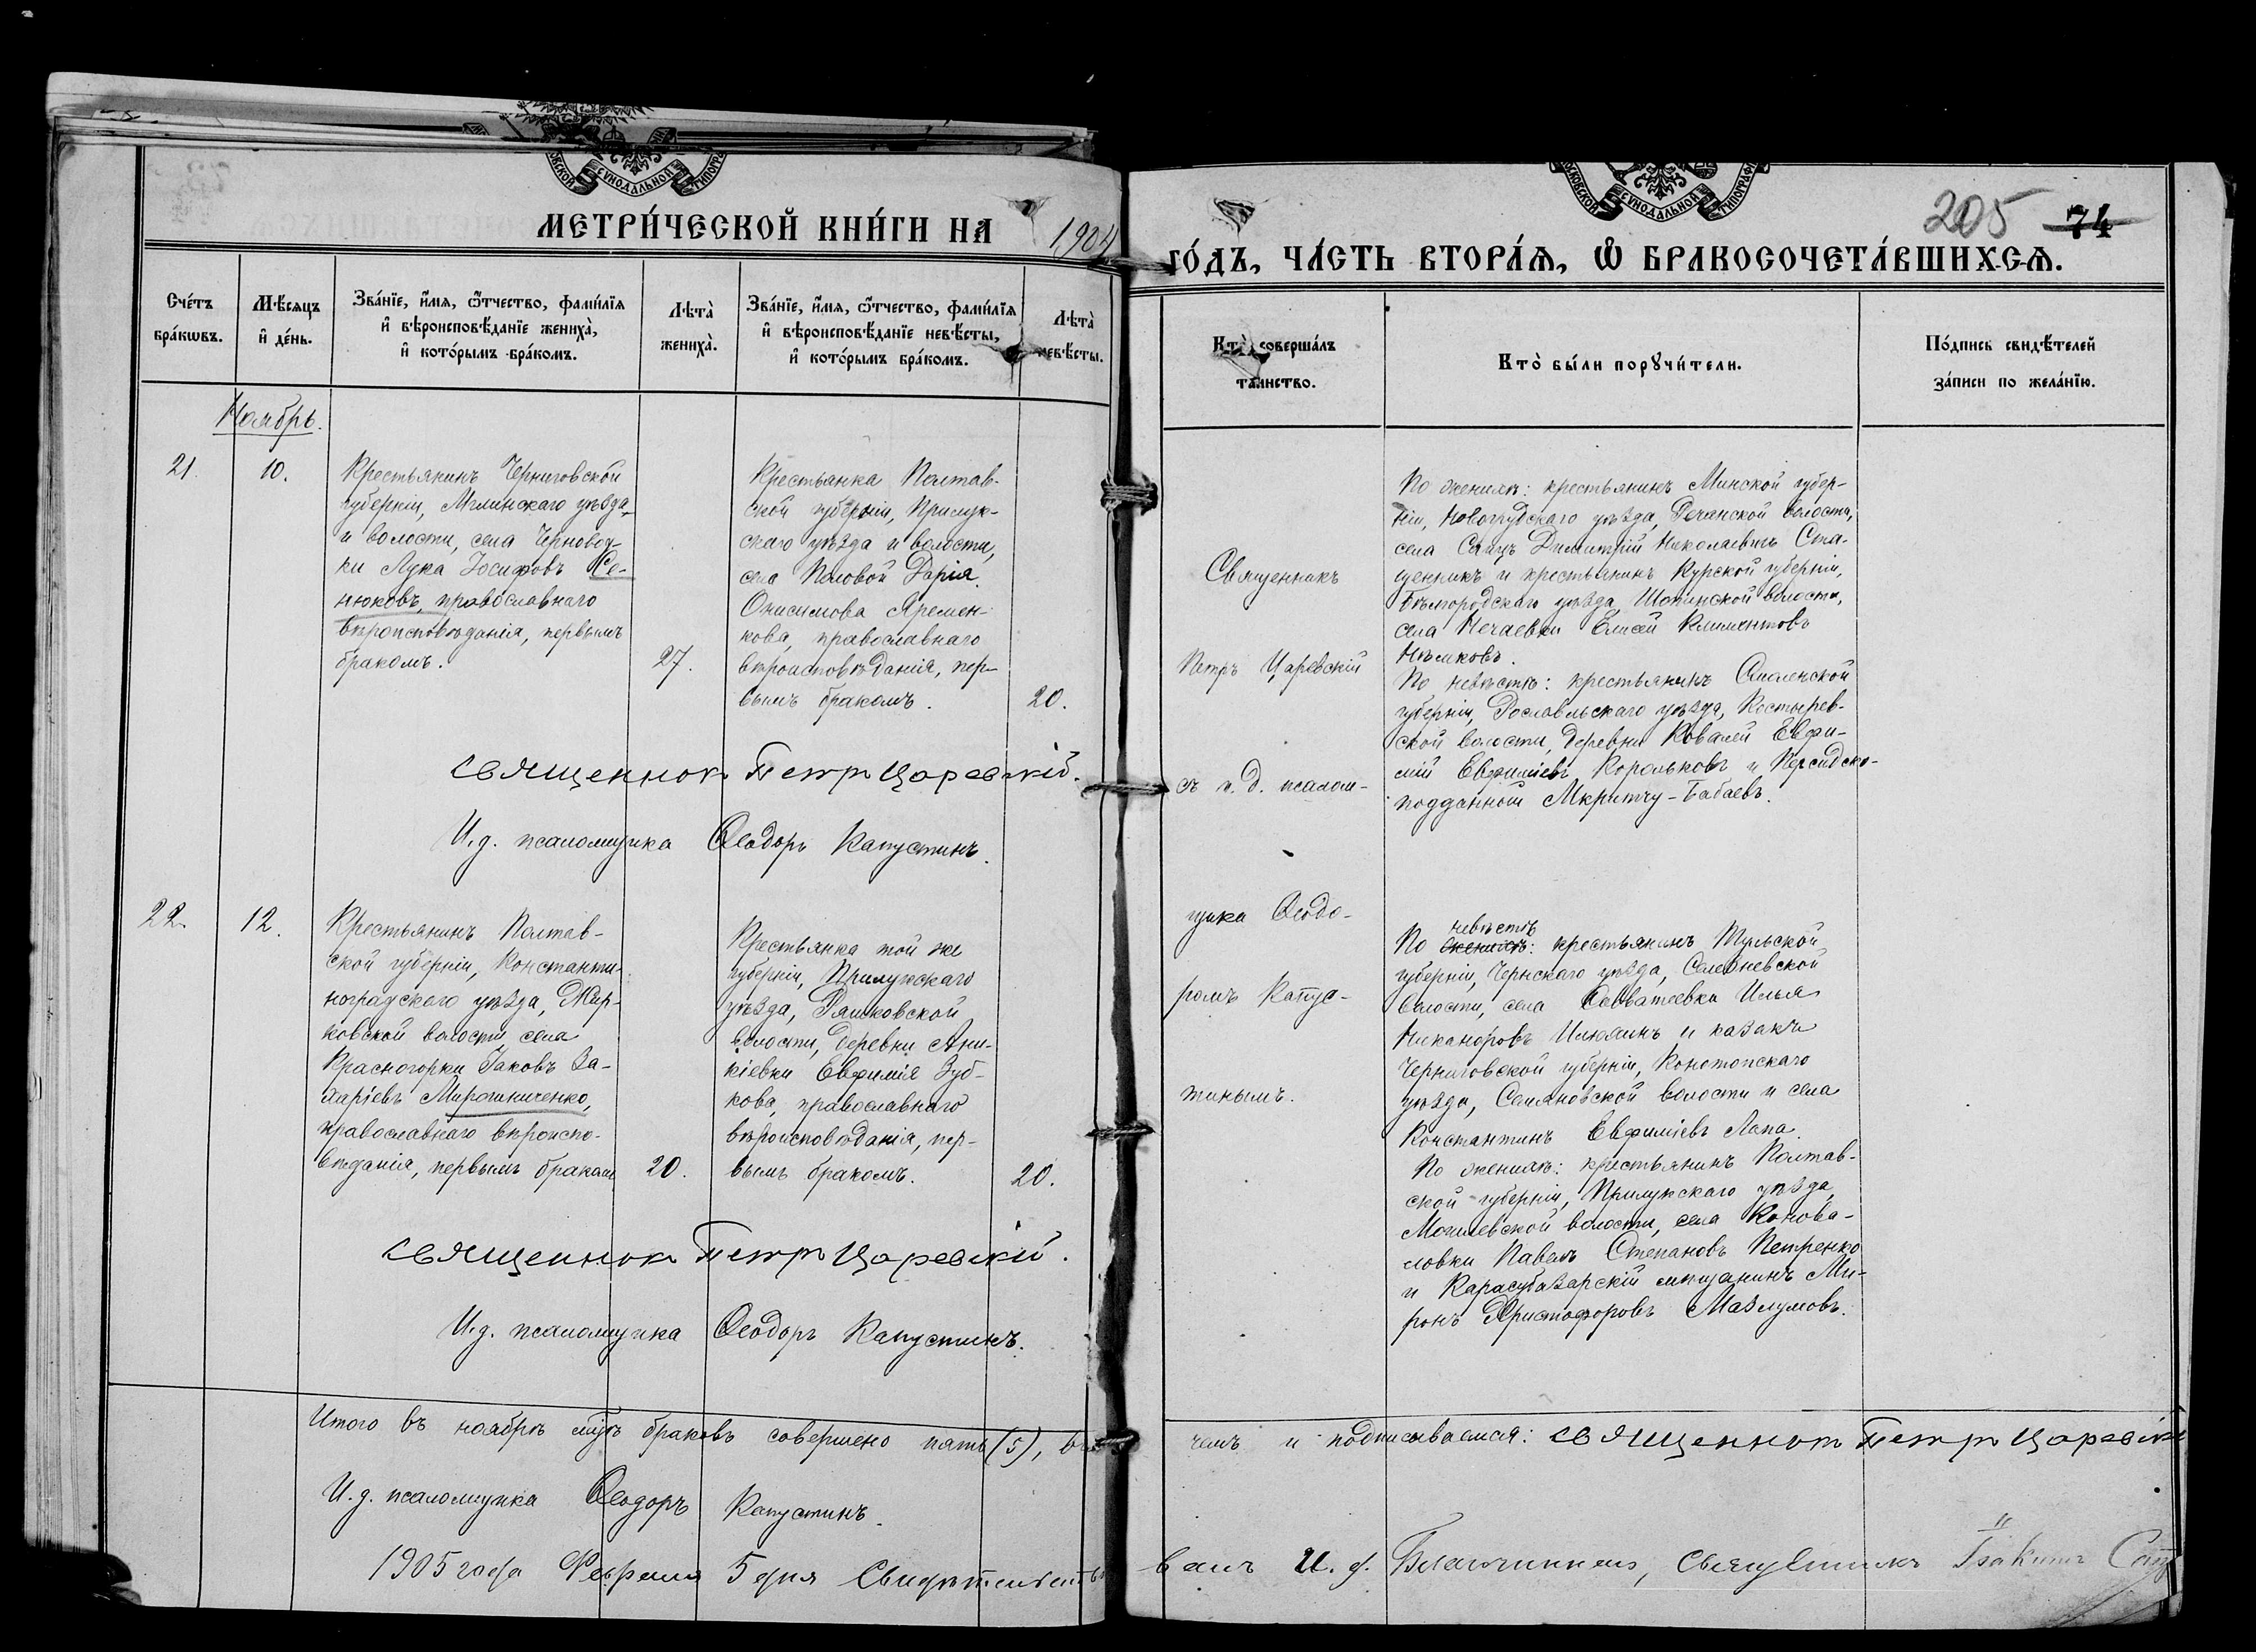 МЕТРИ́ЧЕСКОЙ КНИ́ГИ НА 1904
205 74
ГО́ДЪ, ЧА́СТЬ ВТОРА́Я, Ѽ БРАКОСОЧЕТА́ВШИХСЯ.
Сче́тъ бра́кωвъ.
Мѣ́сяцъ и҆ де́нь.
Зва́нїе, и҆́мя, ѻ҆́тчество, фами́лїя
и҆ вѣроисповѣ́данїе жениха̀,
и҆ кото́рымъ бра́комъ.
Лѣта̀ жениха̀.
Зва́нїе, и҆́мя, ѻ҆́тчество, фами́лїя
и҆ вѣроисповѣ́данїе невѣ́сты,
и҆ кото́рымъ бра́комъ.
Лѣта̀ невѣ́сты.
Кто̀ соверша́лъ
та́инство.
Кто̀ бы́ли порꙋчи́тели.
По́дпись свидѣ́телей
за́писи по жела́нїю.
Ноябрь.
21. 10.
Крестьянинъ Черниговской
губерніи, Мглинскаго уѣзда
и волости, села Черновод-
ки Лука Іосифовъ Се-
нюковъ, православнаго
вѣроисповѣданія, первымъ
бракомъ.
27.
Крестьянка Полтав-
ской губерніи, Прилук-
скаго уѣзда и волости,
села Поповой Дарія
Онисимова Яремен-
кова, православнаго
вѣроисповѣданія, пер-
вымъ бракомъ.
20.
Священникъ
Петръ Царевскій
съ и. д. псалом-
щика Ѳеодо-
ромъ Капус-
тинымъ.
По женихѣ: крестьянинъ Минской губер-
ніи, Новогрудскаго уѣзда,
волости,
села Димитрій Николаевичъ Ста-
щенникъ и крестьянинъ Курской губерніи,
Бѣлгородскаго уѣзда, Шопинской волости,
села Нечаевки Елисей Климентовъ
Нѣмковъ.
По невѣстѣ: крестьянинъ Смоленской
губерніи, Рославльскаго уѣзда, Костырев-
ской волости, деревни Ковалей Евфи-
мій Евфиміевъ Корольковъ и Персидско-
подданный Мкритчу-Бабаевъ.
Священникъ Петръ Царевскій.
И. д. псаломщика Ѳеодоръ Капустинъ.
22. 12.
Крестьянинъ Полтав-
ской губерніи, Константи-
ноградскаго уѣзда,
волости, села
Красногорки Іаковъ За-
харіевъ Мирошниченко,
православнаго вѣроиспо-
вѣданія, первымъ бракомъ
20.
Крестьянка той же
губерніи, Прилукскаго
уѣзда, Ряшковской
волости, деревни Ани-
кіевки Евфимія Зуб-
кова, православнаго
вѣроисповѣданія, пер-
вымъ бракомъ.
20.
невѣстѣ
По женихѣ: крестьянинъ Тульской
губерніи, Чернскаго уѣзда,
волости, села Савватеевки Илья
Никаноровъ Илюхинъ и казакъ
Черниговской губерніи, Конотопскаго
уѣзда, Семяновской волости и села
Константинъ Евфиміевъ Лапа.
По женихѣ: крестьянинъ Полтав-
ской губерніи, Прилукскаго уѣзда,
Могилевской волости, села Конова-
ловки Павелъ Степановъ Петренко
и Карасубазарскій мѣщанинъ Ми-
ронъ Христофоровъ Мазлумовъ.
Священникъ Петръ Царевскій.
И. д. псаломщика Ѳеодоръ Капустинъ.
Итого въ ноябрѣ мцѣ браковъ совершено пять (5), въ чемъ и подписываемся: Священникъ Петръ Царевскій
И. д. псаломщика Ѳеодоръ Капустинъ.
1905 года Февраля 5 дня Свидѣтельство-
валъ И. д. Благочиннаго, Священникъ